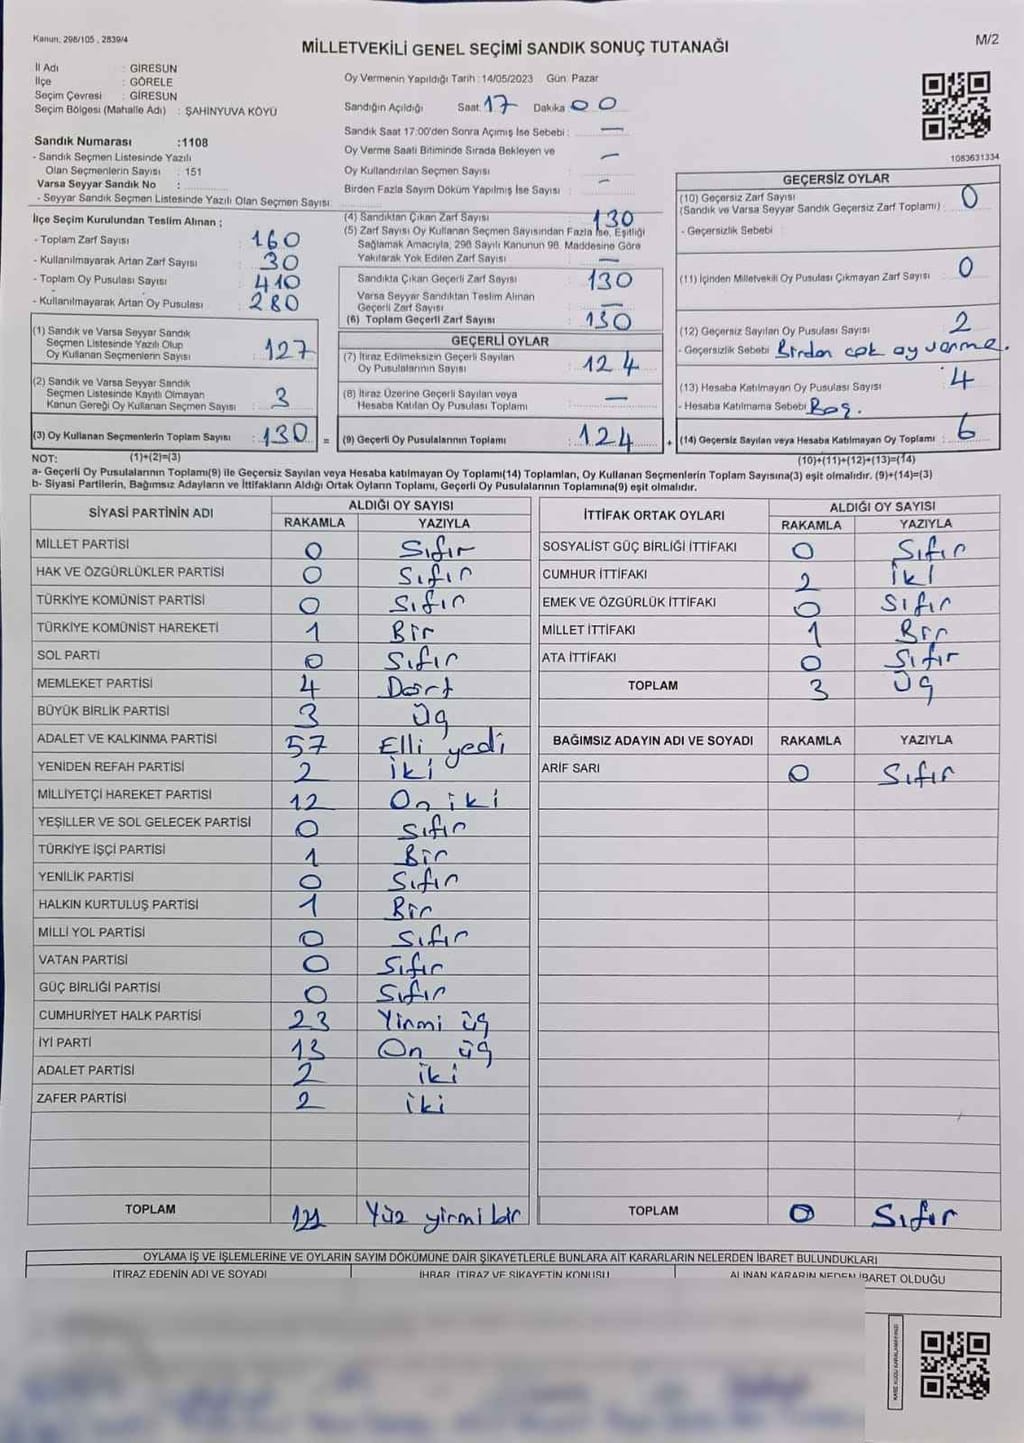 Kanun: 298/105 , 2839/4
M/2
MİLLETVEKİLİ GENEL SEÇİMİ SANDIK SONUÇ TUTANAĞI
İl Adı : GİRESUN
İlçe : GÖRELE
Seçim Çevresi : GİRESUN
Seçim Bölgesi (Mahalle Adı) : ŞAHİNYUVA KÖYÜ
Sandık Numarası :1108
- Sandık Seçmen Listesinde Yazılı
Olan Seçmenlerin Sayısı : 151
Varsa Seyyar Sandık No :
- Seyyar Sandık Seçmen Listesinde Yazılı Olan Seçmen Sayısı:
İlçe Seçim Kurulundan Teslim Alınan ;
- Toplam Zarf Sayısı : 160
- Kullanılmayarak Artan Zarf Sayısı : 30
- Toplam Oy Pusulası Sayısı : 410
- Kullanılmayarak Artan Oy Pusulası : 280
(1) Sandık ve Varsa Seyyar Sandık
Seçmen Listesinde Yazılı Olup
Oy Kullanan Seçmenlerin Sayısı : 127
(2) Sandık ve Varsa Seyyar Sandık
Seçmen Listesinde Kayıtlı Olmayan
Kanun Gereği Oy Kullanan Seçmen Sayısı : 3
(3) Oy Kullanan Seçmenlerin Toplam Sayısı : 130 =
Oy Vermenin Yapıldığı Tarih : 14/05/2023 Gün: Pazar
Sandığın Açıldığı Saat: 17 Dakika: 00
Sandık Saat 17:00'den Sonra Açılmış İse Sebebi : —
Oy Verme Saati Bitiminde Sırada Bekleyen ve
Oy Kullandırılan Seçmen Sayısı : —
Birden Fazla Sayım Döküm Yapılmış İse Sayısı : —
(4) Sandıktan Çıkan Zarf Sayısı : 130
(5) Zarf Sayısı Oy Kullanan Seçmen Sayısından Fazla İse, Eşitliği
Sağlamak Amacıyla, 298 Sayılı Kanunun 98. Maddesine Göre
Yakılarak Yok Edilen Zarf Sayısı : —
Sandıkta Çıkan Geçerli Zarf Sayısı : 130
Varsa Seyyar Sandıktan Teslim Alınan
Geçerli Zarf Sayısı : —
(6) Toplam Geçerli Zarf Sayısı : 130
GEÇERLİ OYLAR
(7) İtiraz Edilmeksizin Geçerli Sayılan
Oy Pusulalarının Sayısı : 124
(8) İtiraz Üzerine Geçerli Sayılan veya
Hesaba Katılan Oy Pusulası Toplamı : —
(9) Geçerli Oy Pusulalarının Toplamı : 124 +
1083631334
GEÇERSİZ OYLAR
(10) Geçersiz Zarf Sayısı : 0
(Sandık ve Varsa Seyyar Sandık Geçersiz Zarf Toplamı)
- Geçersizlik Sebebi :
(11) İçinden Milletvekili Oy Pusulası Çıkmayan Zarf Sayısı : 0
(12) Geçersiz Sayılan Oy Pusulası Sayısı : 2
- Geçersizlik Sebebi : Birden çok oy verme.
(13) Hesaba Katılmayan Oy Pusulası Sayısı : 4
- Hesaba Katılmama Sebebi : Boş.
(14) Geçersiz Sayılan veya Hesaba Katılmayan Oy Toplamı : 6
NOT: (1)+(2)=(3) (10)+(11)+(12)+(13)=(14)
a- Geçerli Oy Pusulalarının Toplamı(9) ile Geçersiz Sayılan veya Hesaba katılmayan Oy Toplamı(14) Toplamları, Oy Kullanan Seçmenlerin Toplam Sayısına(3) eşit olmalıdır. (9)+(14)=(3)
b- Siyasi Partilerin, Bağımsız Adayların ve İttifakların Aldığı Ortak Oyların Toplamı, Geçerli Oy Pusulalarının Toplamına(9) eşit olmalıdır.
SİYASİ PARTİNİN ADI ALDIĞI OY SAYISI
RAKAMLA YAZIYLA
MİLLET PARTİSİ 0 Sıfır
HAK VE ÖZGÜRLÜKLER PARTİSİ 0 Sıfır
TÜRKİYE KOMÜNİST PARTİSİ 0 Sıfır
TÜRKİYE KOMÜNİST HAREKETİ 1 Bir
SOL PARTİ 0 Sıfır
MEMLEKET PARTİSİ 4 Dört
BÜYÜK BİRLİK PARTİSİ 3 Üç
ADALET VE KALKINMA PARTİSİ 57 Elli yedi
YENİDEN REFAH PARTİSİ 2 İki
MİLLİYETÇİ HAREKET PARTİSİ 12 On iki
YEŞİLLER VE SOL GELECEK PARTİSİ 0 Sıfır
TÜRKİYE İŞÇİ PARTİSİ 1 Bir
YENİLİK PARTİSİ 0 Sıfır
HALKIN KURTULUŞ PARTİSİ 1 Bir
MİLLİ YOL PARTİSİ 0 Sıfır
VATAN PARTİSİ 0 Sıfır
GÜÇ BİRLİĞİ PARTİSİ 0 Sıfır
CUMHURİYET HALK PARTİSİ 23 Yirmi üç
İYİ PARTİ 13 On üç
ADALET PARTİSİ 2 iki
ZAFER PARTİSİ 2 iki
TOPLAM 121 Yüz yirmi bir
İTTİFAK ORTAK OYLARI ALDIĞI OY SAYISI
RAKAMLA YAZIYLA
SOSYALİST GÜÇ BİRLİĞİ İTTİFAKI 0 Sıfır
CUMHUR İTTİFAKI 2 İki
EMEK VE ÖZGÜRLÜK İTTİFAKI 0 Sıfır
MİLLET İTTİFAKI 1 Bir
ATA İTTİFAKI 0 Sıfır
TOPLAM 3 Üç
BAĞIMSIZ ADAYIN ADI VE SOYADI RAKAMLA YAZIYLA
ARİF SARI 0 Sıfır
TOPLAM 0 Sıfır
OYLAMA İŞ VE İŞLEMLERİNE VE OYLARIN SAYIM DÖKÜMÜNE DAİR ŞİKAYETLERLE BUNLARA AİT KARARLARIN NELERDEN İBARET BULUNDUKLARI
İTİRAZ EDENİN ADI VE SOYADI İHBAR, İTİRAZ VE ŞİKAYETİN KONUSU ALINAN KARARIN NEDEN İBARET OLDUĞU